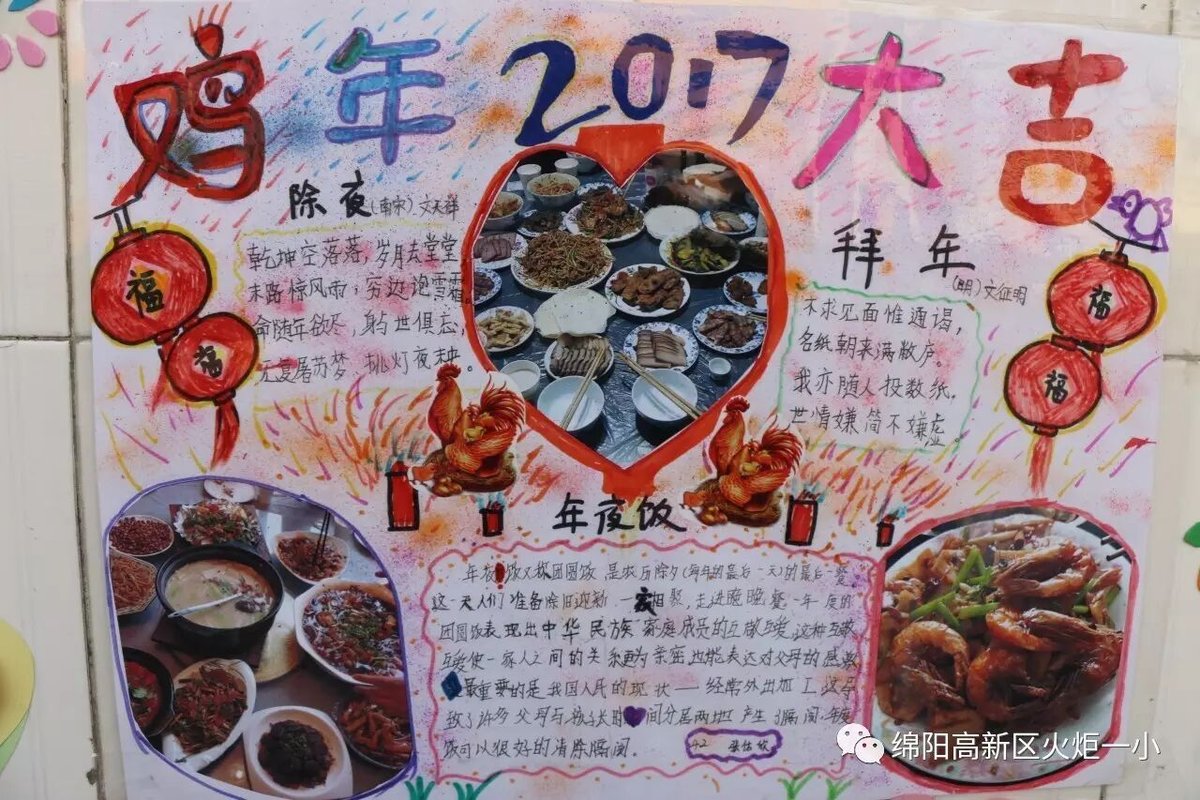 鸡年2017大吉
除夜(南宋)文天祥
乾坤空落落,岁月去堂堂
末路惊风雨;穷边饱雪霜
命随年欲尽,身与世俱忘,
无复屠苏梦,挑灯夜未央。
拜年
(明)文征明
不求见面惟通谒,
名纸朝来满敝庐。
我亦随人投数纸,
世情嫌简不嫌虚。
福
福
福
福
年夜饭
年夜饭又称团圆饭是农历除夕(每年的最后一天)的最后一餐
这一天人们准备除旧迎新,一家相聚,走进晚晚餐一年一度的
团圆饭表现出中华民族家庭成员的互敬互爱,这种互敬
互爱使一家人之间的关系更为亲密也能表达对父母的感激
最重要的是我国人民的现状——经常外出加工,这导
致了许多父母与孩子长时间分居两地产生了隔阂,年夜
饭可以很好的消除隔阂。
4.2
绵阳高新区火炬一小